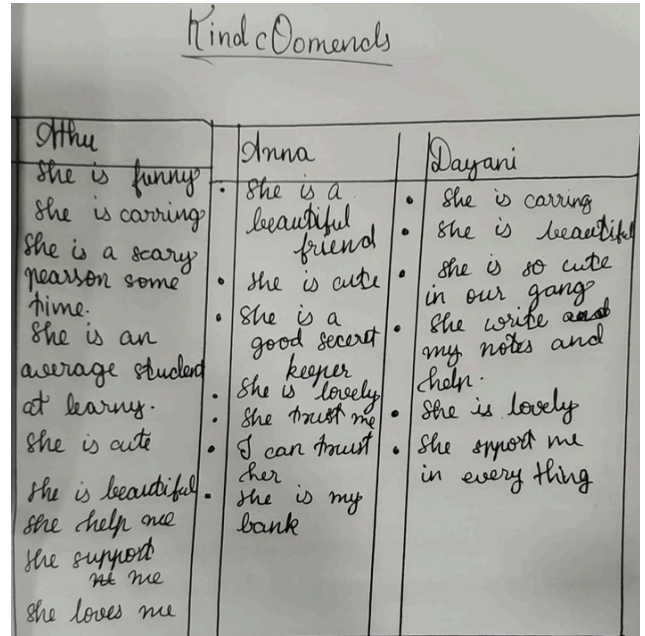 Kind cOomends
Athu
she is funny
she is carring
she is a scary
pearson some
time.
she is an
average student
at learny.
she is cute
she is beautiful
she help me
she support
me
she loves me
Anna
• she is a
beautiful
friend
• she is cute
• she is a
good secret
keeper
• she is lovely
• she trust me
• I can trust
her
• she is my
bank
Dayani
• she is carring
• she is beautiful
• she is so cute
in our gang
• she write
my notes and
help.
• she is lovely
• she spport me
in every thing